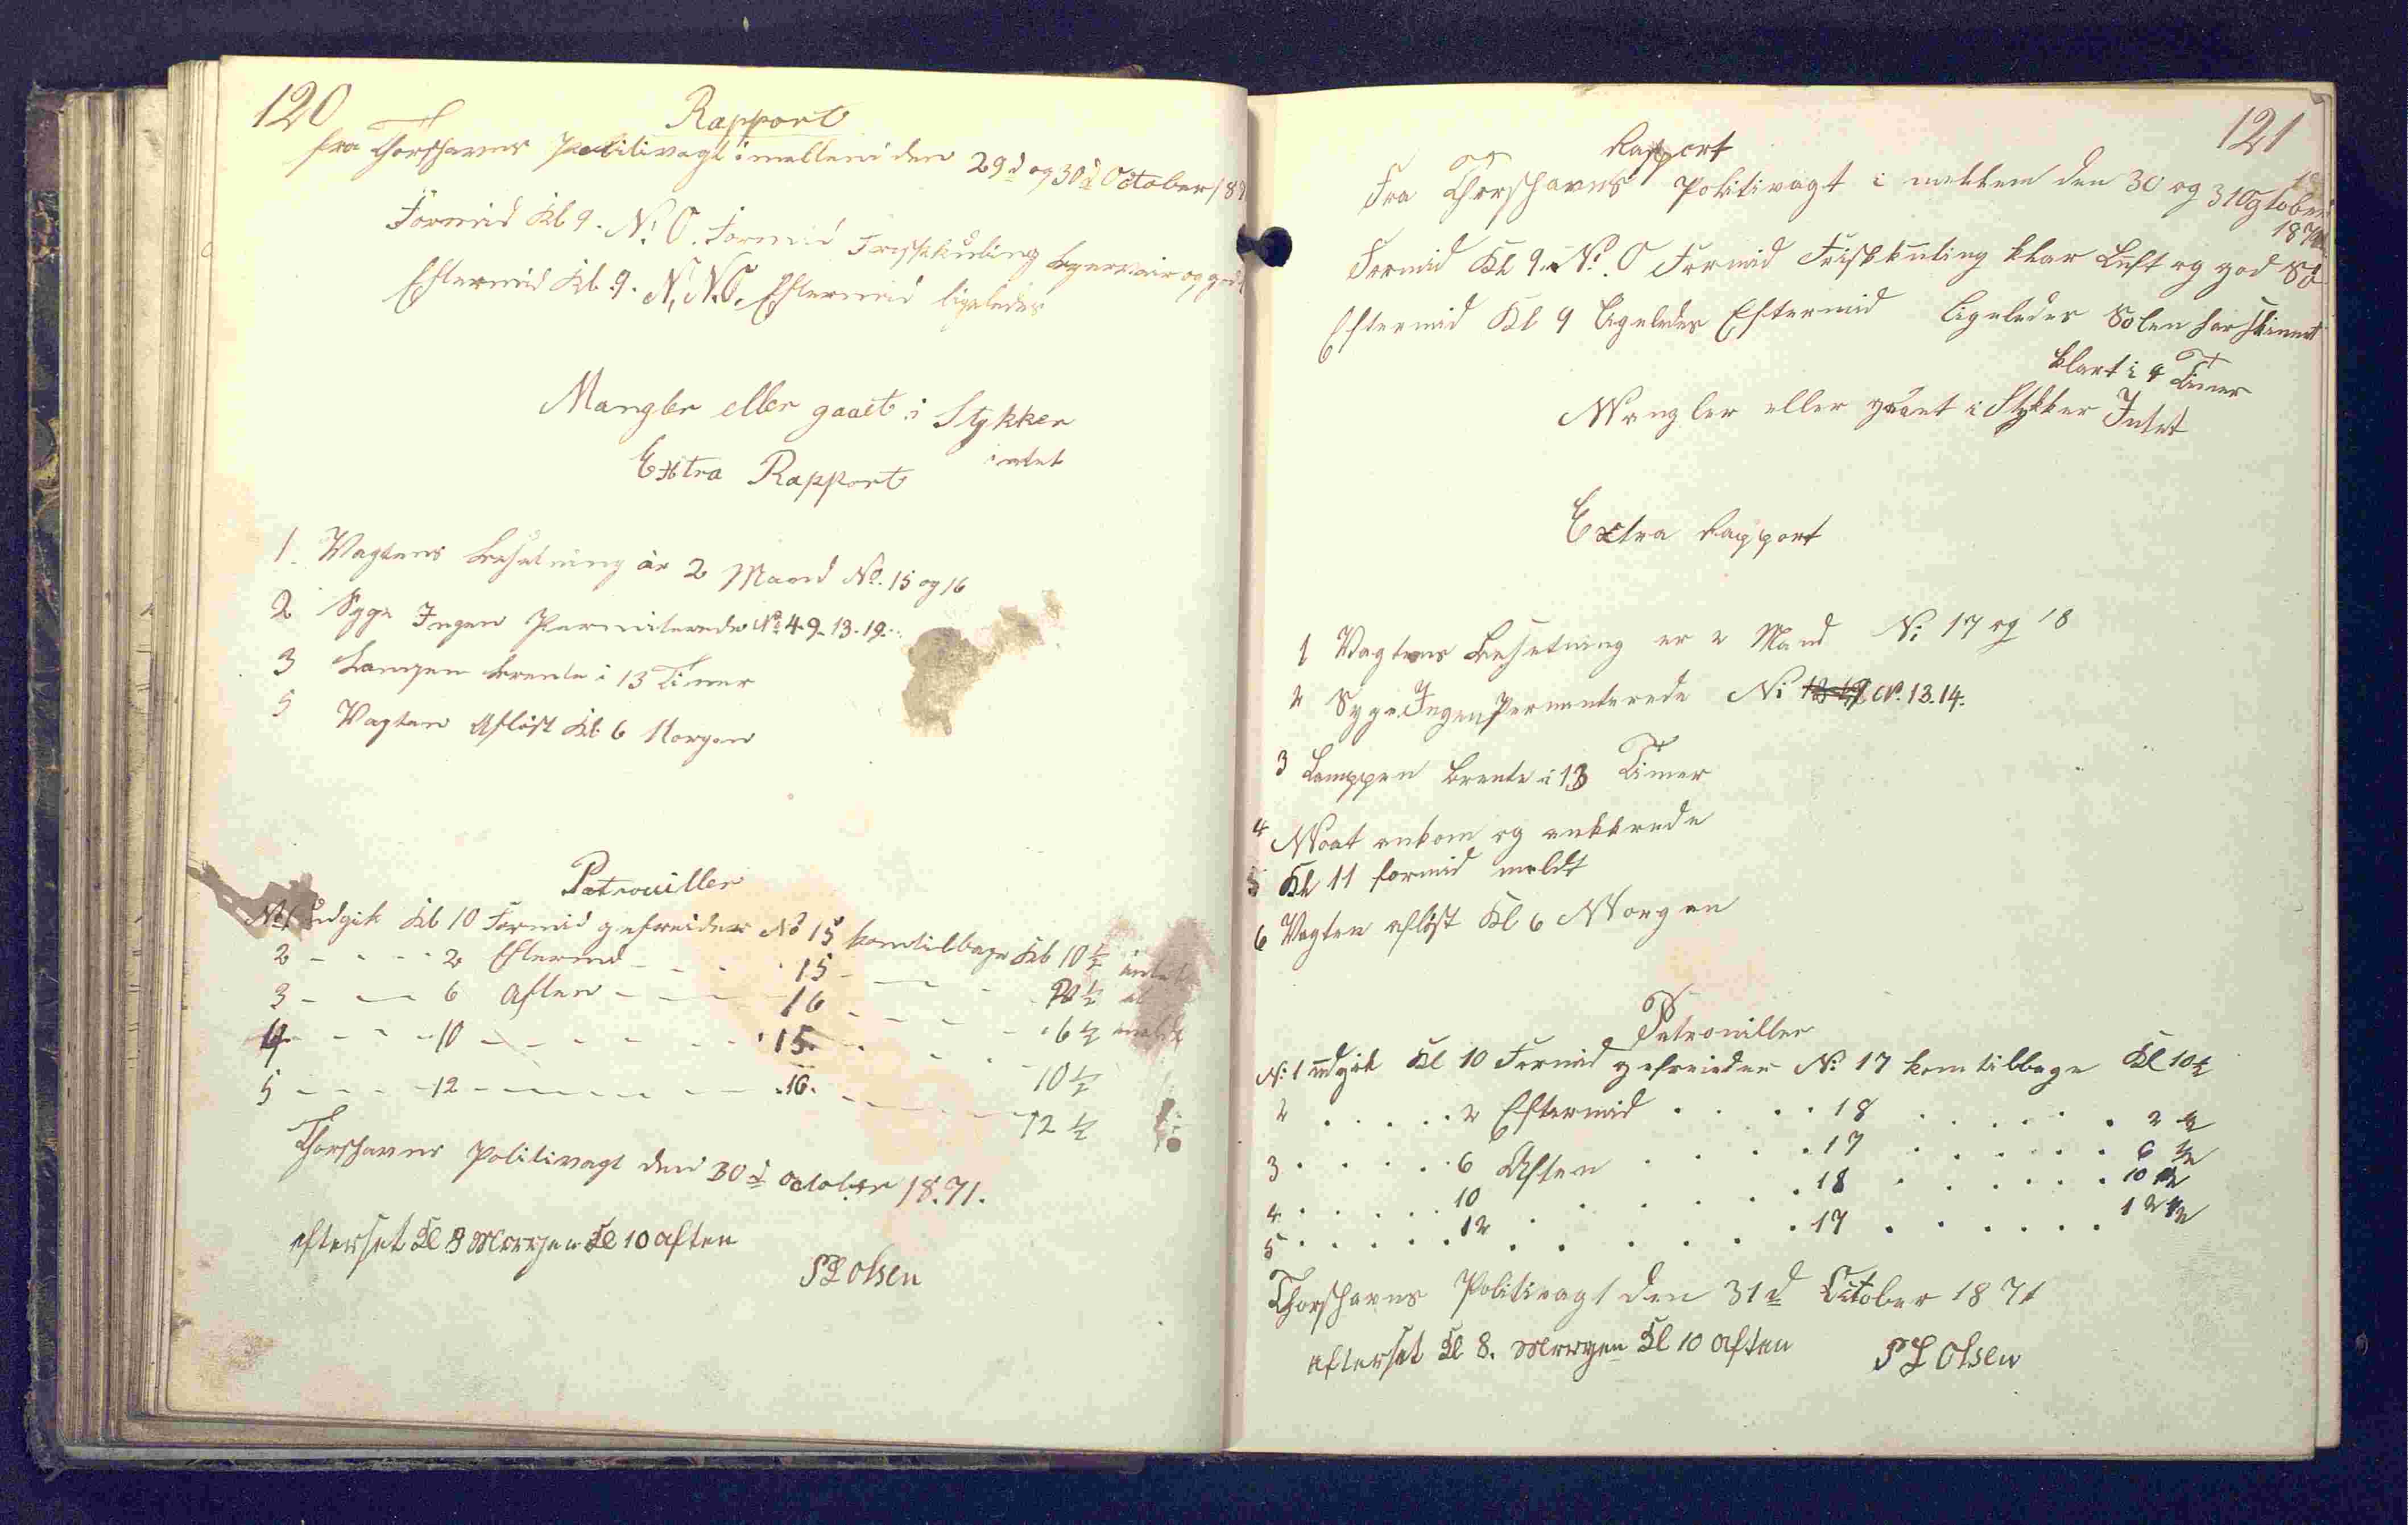 120
Rapport
fra Thorshavns Politivagt imellem den 29d og 30d October 187
Formid Kl 9. N. O. Formid Friskkuling og god
Eftermid Kl. 9. N, N.O. Eftermid ligeledes
Mangler eller gaaet i Stykker
intet
Extra Rapport
1. Vagtens besetning är 2 Mand No. 15 og 16
2 Syge Ingen Permiterede No 4-9-13-19..
3 Lampen brente i 13 Timer
5 Vagten Aflöst Kl. 6 Morgen
Patrouiller
No 1 udgik Kl 10 Formid gefreider No 15 kom tilbage Kl 10 1/2 intet
2 - - - - 2 Eftermid - - - 15 - - - 2 1/2 at
3 - - - 6 Aften - - - 16 - - - 6 1/2 melde
4 - - - 10 - - - - 15. - - - 10 1/2
5 - - - 12 - - - - .16. - - - 12 1/2
Thorshavns Politivagt den 30d october 18.71.
efterset Kl 8 Morgen Kl 10 aften
S L Olsen
121
Rapport
Fra Thorshavns Politivagt i mellem den 30 og 31 Ogtober
1871
Formid Kl 9. N. O Formid Friskkuling klar Luft og god Sö
Eftermid Kl 9 Ligeledes Eftermid Ligeledes Solen har skinnet
klart i 9 Timer
Mangler eller gaaet i Stykker Intet
Extra Rapport
1 Vagtens Besetning er 2 Mand No 17 og 18
2 Syge Ingen Permenterede No No. 13.14.
3 Lamppen brente i 13 Timer
4 ankom og ankkrede
5 Kl 11 formid meldt
6 Vagten aflöst Kl 6 Morgen
Patrouiller
No 1 udgik Kl 10 Formid gefreider No 17 kom tilbage Kl 10 1/2
2 . . . . . 2 Eftermid . . . . 18 . . . . . 2 1/2
3 . . . . . 6 Aften . . . . 17 . . . . . 6 1/2
4 . . . . . 10 . . . . . 18 . . . . . 10 1/2
5 . . . . . 12 . . . . . 17 . . . . . 12 1/2
Thorshavns Politivagt den 31d October 1871
efterset Kl 8. Morgen Kl 10 aften
S L Olsen